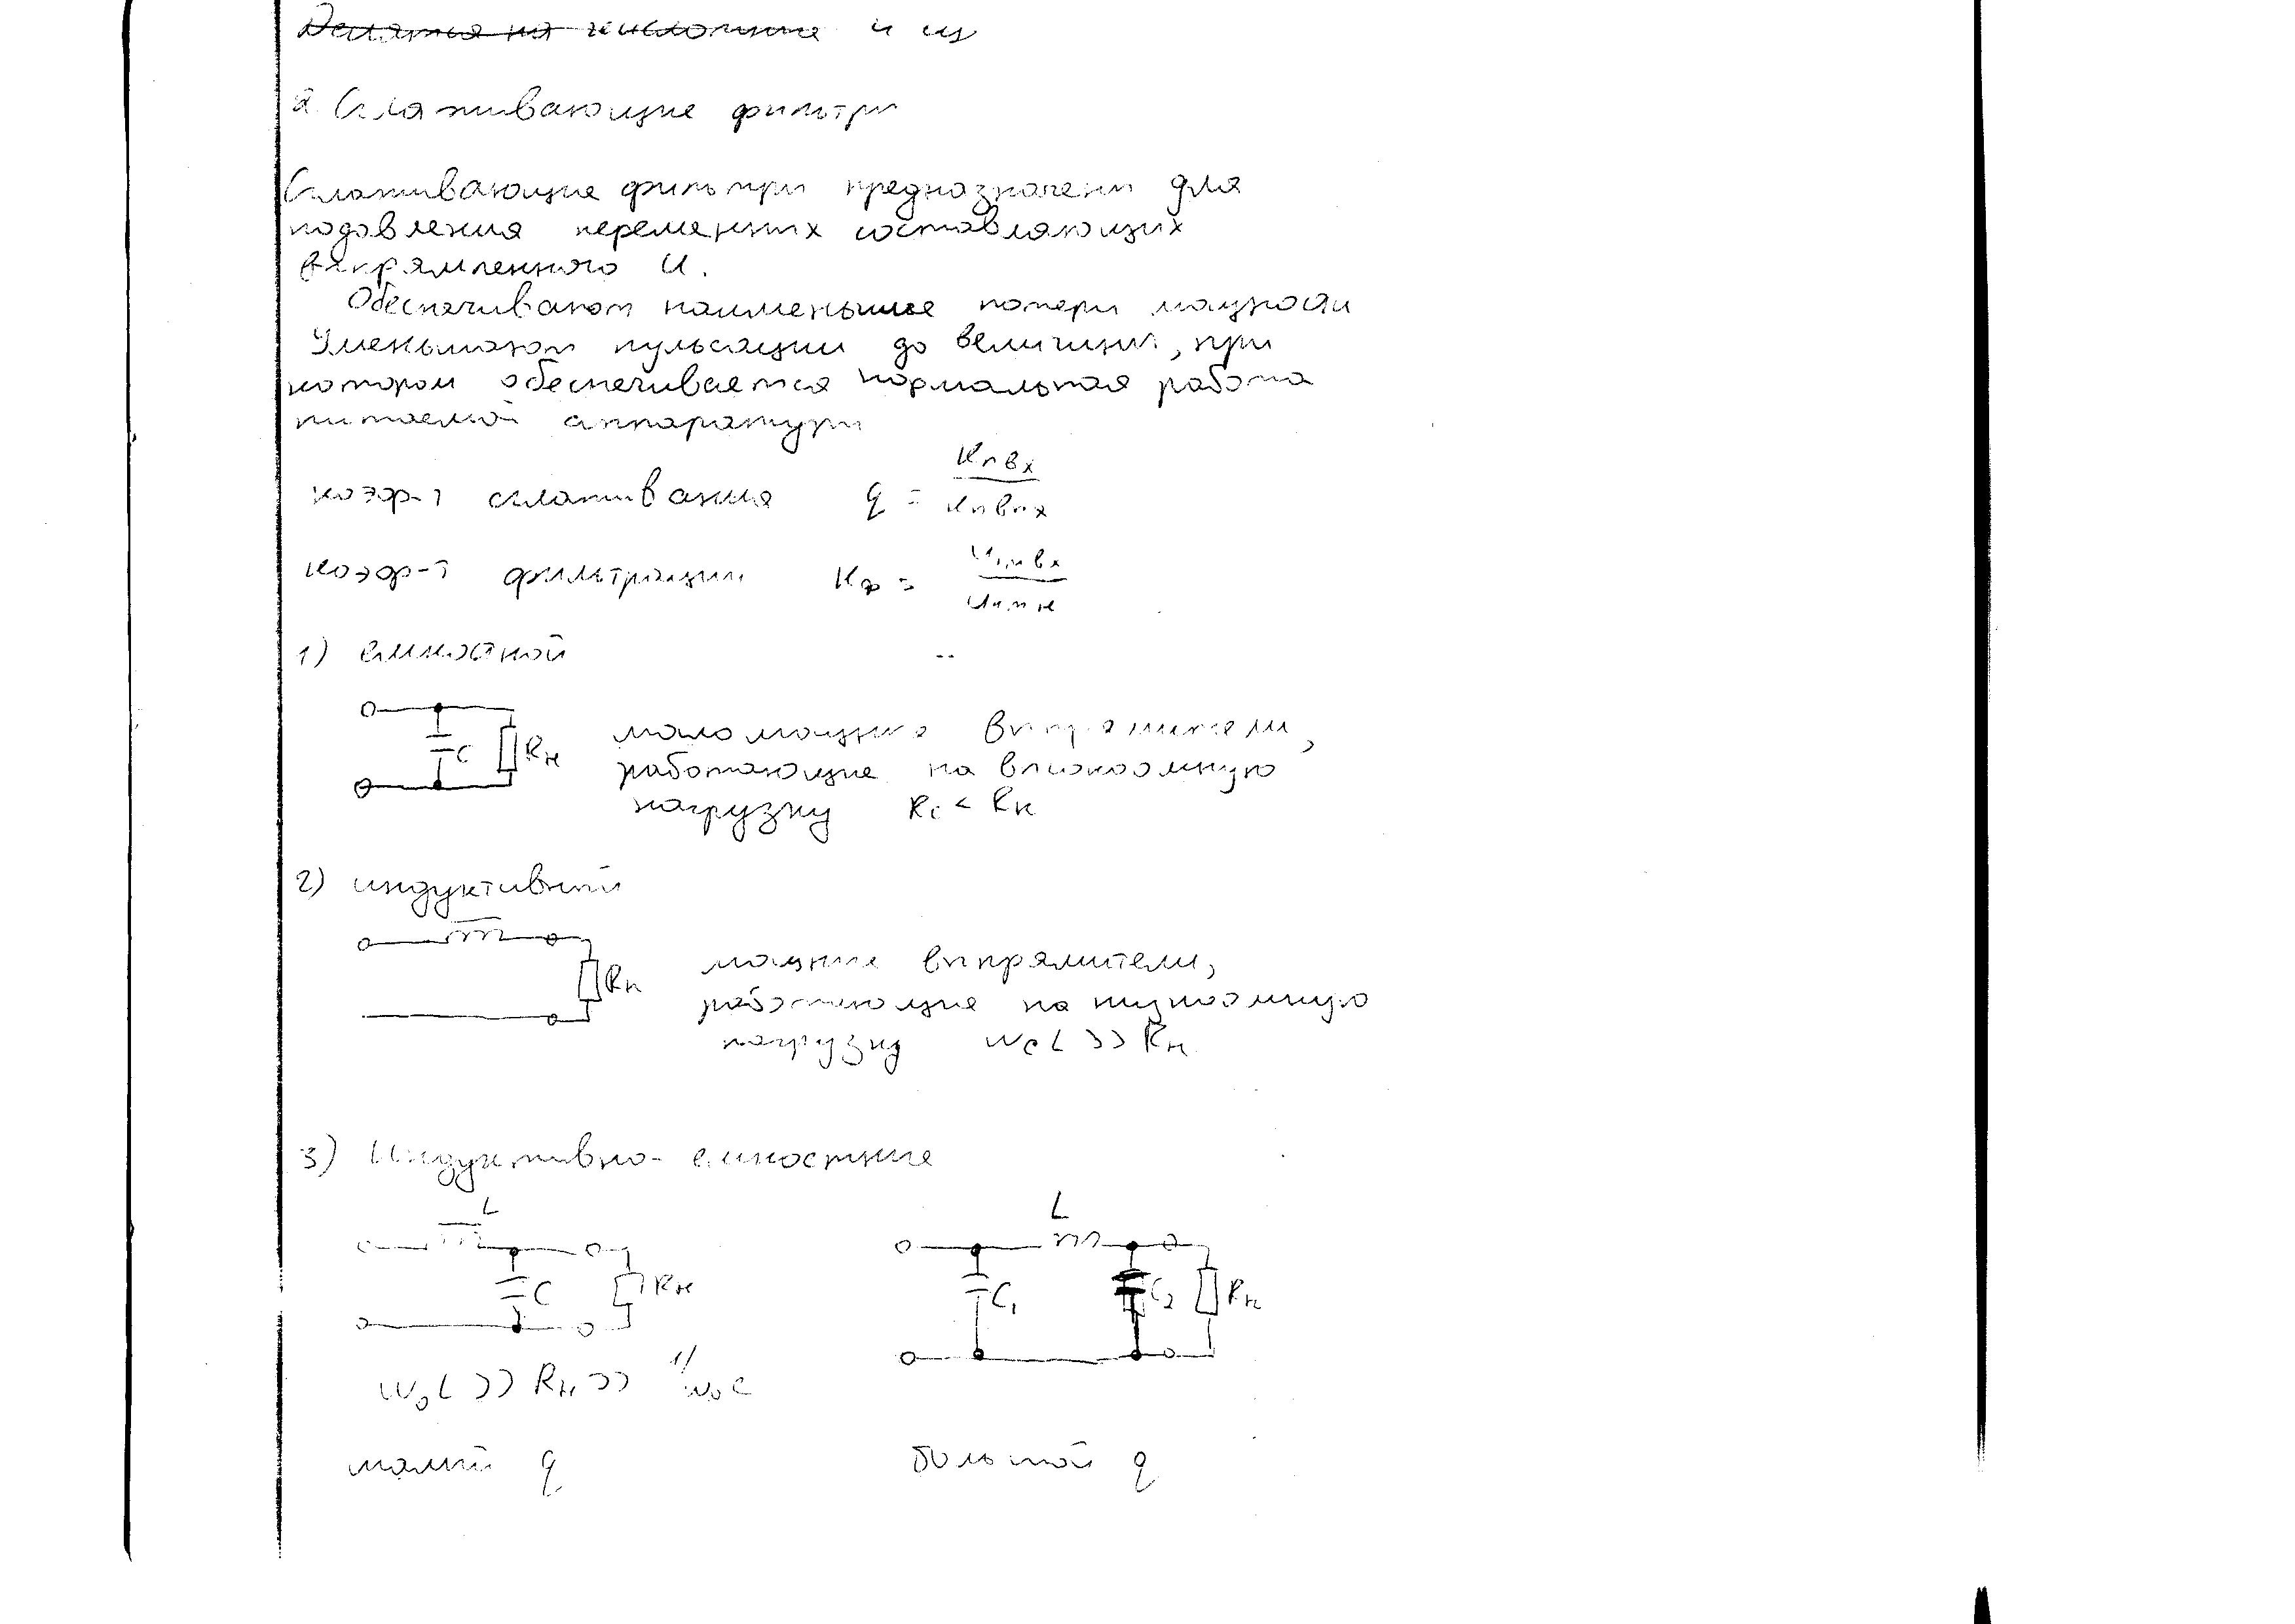 и из
2. Сглаживающие фильтры
Сглаживающие фильтры предназначены для
подавления переменных составляющих
выпрямленного U.
Обеспечивают наименьшие потери мощности
Уменьшают пульсации до величины, при
котором обеспечивается нормальная работа
питаемой аппаратуры
коэф-т сглаживания q = Kп вх / Kп вых
коэф-т фильтрации Kф = U1m вх / U1m н
1) емкостной
C Rн
маломощные выпрямители,
работающие на высокоомную
нагрузку Rc < Rн
2) индуктивный
Rн
мощные выпрямители,
работающие на низкоомную
нагрузку wcL >> Rн
3) Индуктивно-емкостные
L
C Rн
L
C1 C2 Rн
w0L >> Rн >> 1/w0C
малый q
большой q